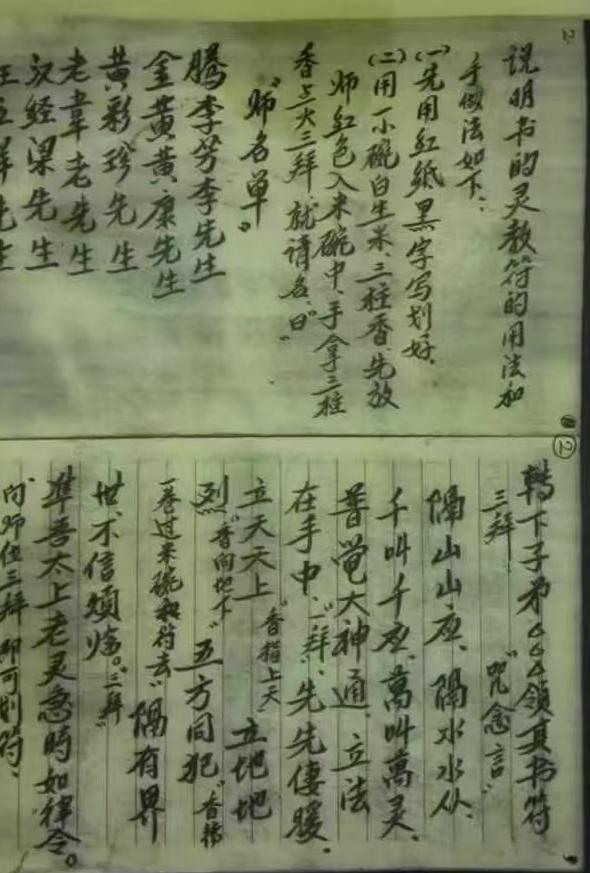 2
说明书的灵教符的用法和
手做法如下:
(一)先用红纸黑字写划好.
(二)用一小碗白生米、三柱香、先放
师红色入米碗中、手拿三柱
香点火三拜、就请名、曰"
"师名单"。
腾李芳李先生
金黄黄康先生
黄彩珍先生
老韋老先生
汉经梁先生
王五 先生
②
转下子弟△△△領真书符
三拜 "咒念言"
隔山山应、隔水水从、
千叫千应、萬叫萬灵、
普覚大神通、立法
在手中、"一拜"、先先 、
立天天上"香指上天" 立地地
烈"香向地下" 五方同犯"香
一卷过米碗和符去" 隔有界
世不信煩 。"三拜"
準吾太上老灵急時如律令。
向师位三拜即可划符、